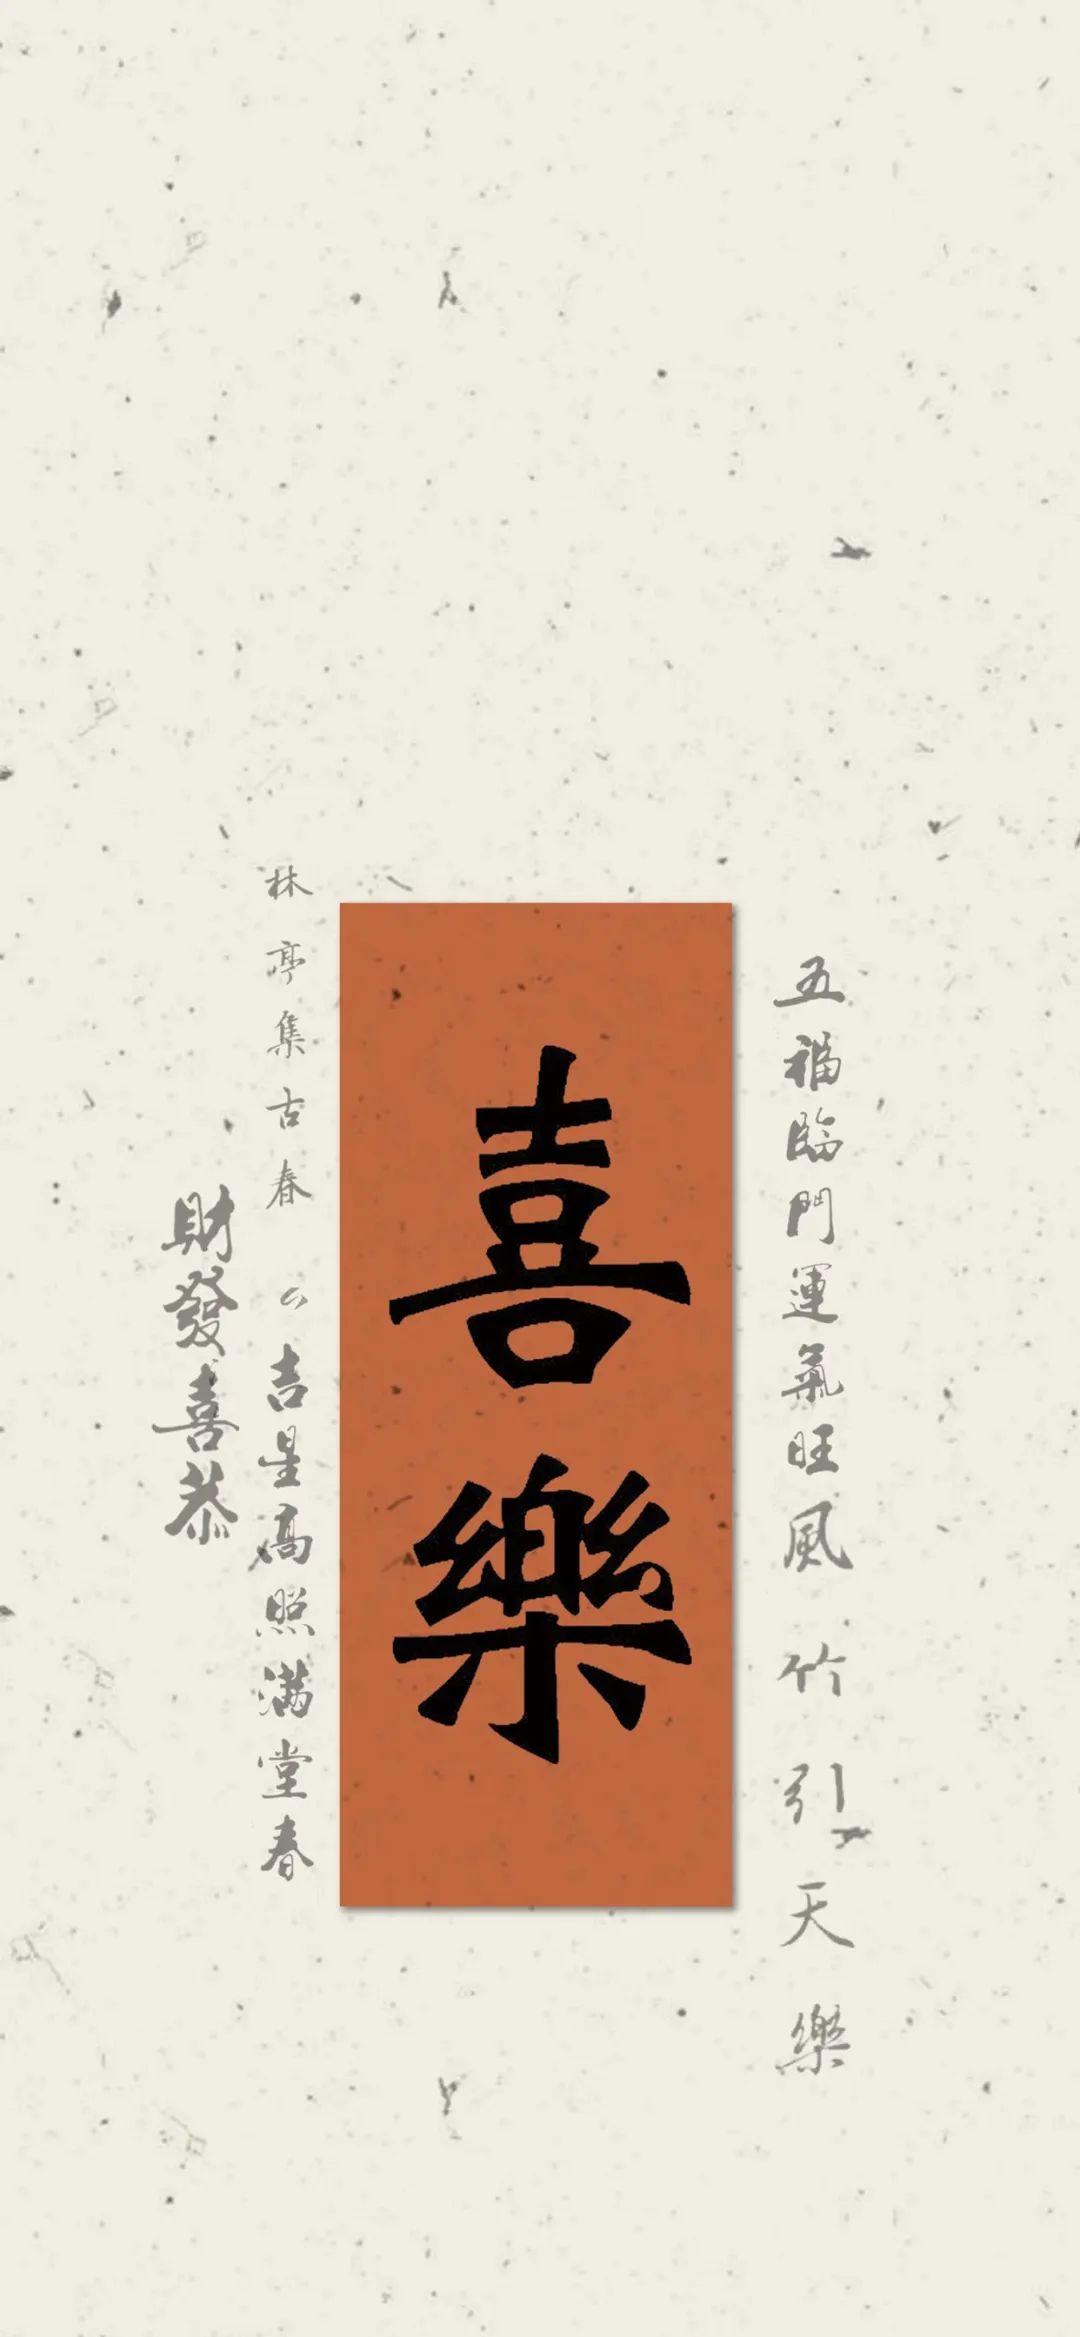 五福臨門運氣旺風竹引天樂
喜樂
林亭集古春
吉星高照滿堂春
財發喜恭